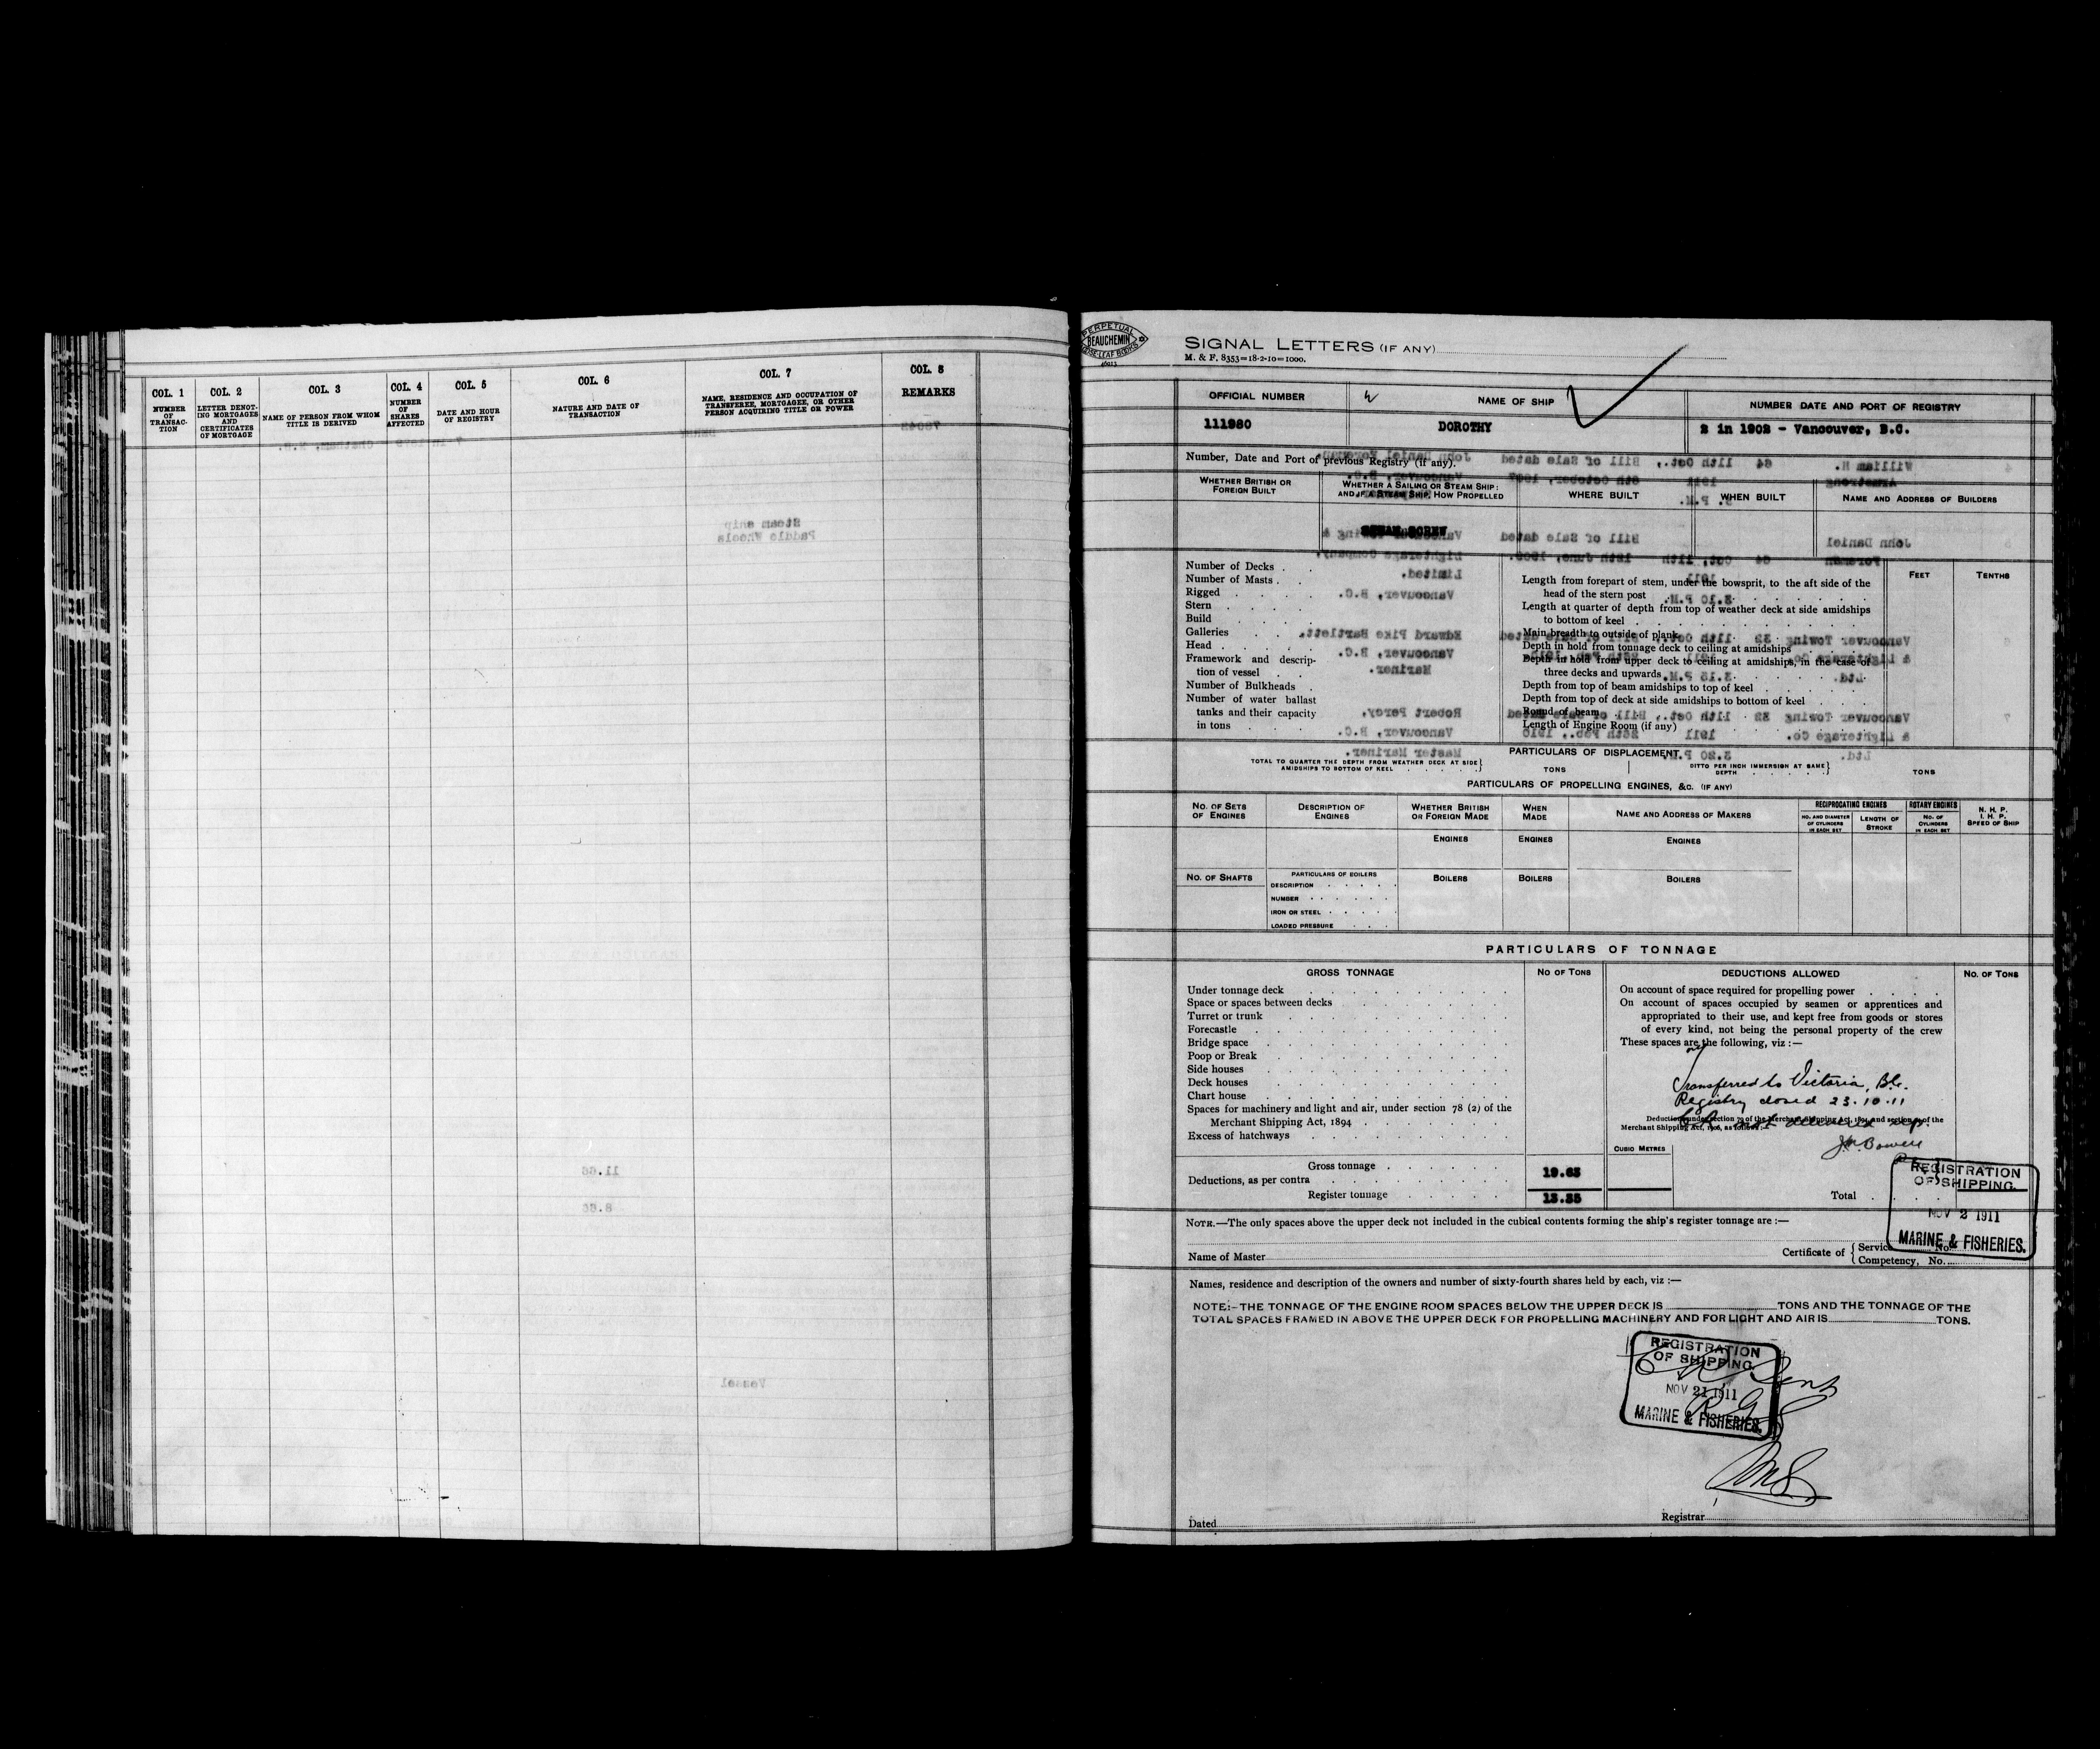 COL. 1
NUMBER OF TRANSAC-TION
COL. 2
LETTER DENOT-ING MORTGAGES AND CERTIFICATES OF MORTGAGE
COL. 3
NAME OF PERSON FROM WHOM TITLE IS DERIVED
COL. 4
NUMBER OF SHARES AFFECTED
COL. 5
DATE AND HOUR OF REGISTRY
COL. 6
NATURE AND DATE OF TRANSACTION
COL. 7
NAME, RESIDENCE AND OCCUPATION OF TRANSFEREE, MORTGAGEE, OR OTHER PERSON ACQUIRING TITLE OR POWER
COL. 8
REMARKS
PERPETUAL
BEAUCHEMIN
LOOSE-LEAF BOOKS
SIGNAL LETTERS (IF ANY)
M. & F. 8353=18-2-10=1000.
OFFICIAL NUMBER
NAME OF SHIP
NUMBER DATE AND PORT OF REGISTRY
111980
DOROTHY
2 in 1902 - Vancouver, B.C.
Number, Date and Port of previous Registry (if any).
WHETHER BRITISH OR FOREIGN BUILT
WHETHER A SAILING OR STEAM SHIP: AND IF A STEAM SHIP, HOW PROPELLED
WHERE BUILT
WHEN BUILT
NAME AND ADDRESS OF BUILDERS
STEAM SCREW
Number of Decks
Number of Masts
Rigged
Stern
Build
Galleries
Head
Framework and descrip-
tion of vessel
Number of Bulkheads
Number of water ballast
tanks and their capacity
in tons
Length from forepart of stem, under the bowsprit, to the aft side of the
head of the stern post
Length at quarter of depth from top of weather deck at side amidships
to bottom of keel
Main breadth to outside of plank
Depth in hold from tonnage deck to ceiling at amidships
Depth in hold from upper deck to ceiling at amidships, in the case of
three decks and upwards
Depth from top of beam amidships to top of keel
Depth from top of deck at side amidships to bottom of keel
Round of beam
Length of Engine Room (if any)
FEET
TENTHS
PARTICULARS OF DISPLACEMENT.
TOTAL TO QUARTER THE DEPTH FROM WEATHER DECK AT SIDE AMIDSHIPS TO BOTTOM OF KEEL
TONS
DITTO PER INCH IMMERSION AT SAME DEPTH
TONS
PARTICULARS OF PROPELLING ENGINES, &c. (IF ANY)
NO. OF SETS OF ENGINES
DESCRIPTION OF ENGINES
WHETHER BRITISH OR FOREIGN MADE
WHEN MADE
NAME AND ADDRESS OF MAKERS
RECIPROCATING ENGINES
NO. AND DIAMETER OF CYLINDERS IN EACH SET
LENGTH OF STROKE
ROTARY ENGINES
NO. OF CYLINDERS IN EACH SET
N. H. P.
I. H. P.
SPEED OF SHIP
ENGINES
ENGINES
ENGINES
NO. OF SHAFTS
PARTICULARS OF BOILERS
DESCRIPTION
NUMBER
IRON OR STEEL
LOADED PRESSURE
BOILERS
BOILERS
BOILERS
PARTICULARS OF TONNAGE
GROSS TONNAGE
NO OF TONS
DEDUCTIONS ALLOWED
NO. OF TONS
Under tonnage deck
Space or spaces between decks
Turret or trunk
Forecastle
Bridge space
Poop or Break
Side houses
Deck houses
Chart house
Spaces for machinery and light and air, under section 78 (2) of the
Merchant Shipping Act, 1894
Excess of hatchways
Gross tonnage
19.63
Deductions, as per contra
Register tonnage
13.35
On account of space required for propelling power
On account of spaces occupied by seamen or apprentices and
appropriated to their use, and kept free from goods or stores
of every kind, not being the personal property of the crew
These spaces are the following, viz :—
Transferred to Victoria, B.C.
Registry closed 23.10.11
Deductions under section 79 of the Merchant Shipping Act, 1894 and section 54 of the
Merchant Shipping Act, 1906, as follows :—
CUBIC METRES
Total
REGISTRATION
OF SHIPPING.
NOV 2 1911
MARINE & FISHERIES.
NOTE.—The only spaces above the upper deck not included in the cubical contents forming the ship's register tonnage are :—
Name of Master
Certificate of { Service No.
Competency, No.
Names, residence and description of the owners and number of sixty-fourth shares held by each, viz :—
NOTE:–THE TONNAGE OF THE ENGINE ROOM SPACES BELOW THE UPPER DECK IS TONS AND THE TONNAGE OF THE
TOTAL SPACES FRAMED IN ABOVE THE UPPER DECK FOR PROPELLING MACHINERY AND FOR LIGHT AND AIR IS TONS.
REGISTRATION
OF SHIPPING.
NOV 21 1911
MARINE & FISHERIES.
Dated
Registrar